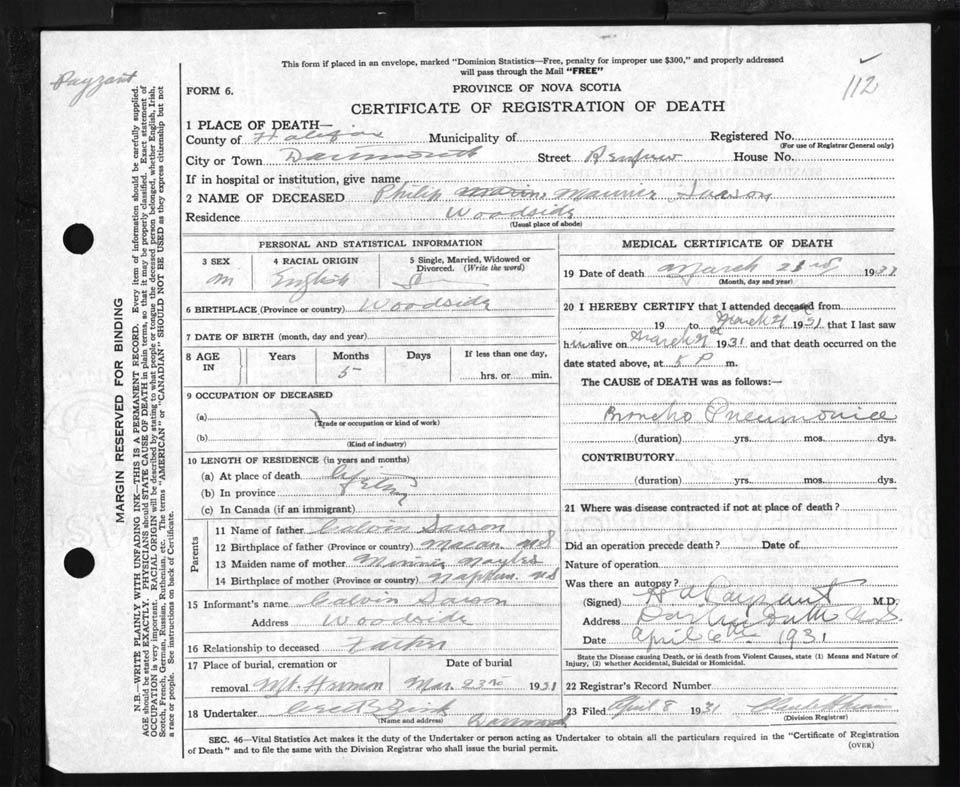 This form if placed in an envelope, marked "Dominion Statistics—Free, penalty for improper use $300," and properly addressed
will pass through the Mail "FREE"
Payzant
112
FORM 6.
PROVINCE OF NOVA SCOTIA
CERTIFICATE OF REGISTRATION OF DEATH
MARGIN RESERVED FOR BINDING
N.B.—WRITE PLAINLY WITH UNFADING INK—THIS IS A PERMANENT RECORD. Every item of information should be carefully supplied.
AGE should be stated EXACTLY. PHYSICIANS should STATE CAUSE OF DEATH in plain terms, so that it may be properly classified. Exact statement of
OCCUPATION is very important. RACIAL ORIGIN will be described by stating to what people or tongue the deceased person belonged, whether English, Irish,
Scotch, French, German, Russian, Ruthenian, etc. The terms "AMERICAN" or "CANADIAN" SHOULD NOT BE USED as they express citizenship but not
a race or people. See instructions on back of Certificate.
1 PLACE OF DEATH—
County of Halifax Municipality of Registered No.
(For use of Registrar General only)
City or Town Dartmouth Street Renfrew House No.
If in hospital or institution, give name
2 NAME OF DECEASED Philip Maurice
Residence Woodside
(Usual place of abode)
PERSONAL AND STATISTICAL INFORMATION
3 SEX 4 RACIAL ORIGIN 5 Single, Married, Widowed or Divorced. (Write the word)
m English S
6 BIRTHPLACE (Province or country) Woodside
7 DATE OF BIRTH (month, day and year)
8 AGE IN Years Months Days If less than one day,
5 hrs. or min.
9 OCCUPATION OF DECEASED
(a)
(Trade or occupation or kind of work)
(b)
(Kind of industry)
10 LENGTH OF RESIDENCE (in years and months)
(a) At place of death
(b) In province
(c) In Canada (if an immigrant)
Parents
11 Name of father Calvin
12 Birthplace of father (Province or country) Macan NS
13 Maiden name of mother Minnie
14 Birthplace of mother (Province or country) Nappan NS
15 Informant's name Calvin
Address Woodside
16 Relationship to deceased Father
17 Place of burial, cremation or Date of burial
removal Mt. Hermon Mar. 23rd 1931
18 Undertaker
(Name and address) Dartmouth
MEDICAL CERTIFICATE OF DEATH
19 Date of death March 1931
(Month, day and year)
20 I HEREBY CERTIFY that I attended deceased from
19 to March 21 1931 that I last saw
him alive on March 1931 and that death occurred on the
date stated above, at P m.
The CAUSE of DEATH was as follows:—
Broncho Pneumonia
(duration) yrs. mos. dys.
CONTRIBUTORY
(duration) yrs. mos. dys.
21 Where was disease contracted if not at place of death?
Did an operation precede death? Date of
Nature of operation
Was there an autopsy?
(Signed) Payzant M.D.
Address Dartmouth N.S.
Date April 6th 1931
State the Disease causing Death, or in death from Violent Causes, state (1) Means and Nature of
Injury, (2) whether Accidental, Suicidal or Homicidal.
22 Registrar's Record Number
23 Filed April 8 1931
(Division Registrar)
SEC. 46—Vital Statistics Act makes it the duty of the Undertaker or person acting as Undertaker to obtain all the particulars required in the "Certificate of Registration
of Death" and to file the same with the Division Registrar who shall issue the burial permit.
(OVER)